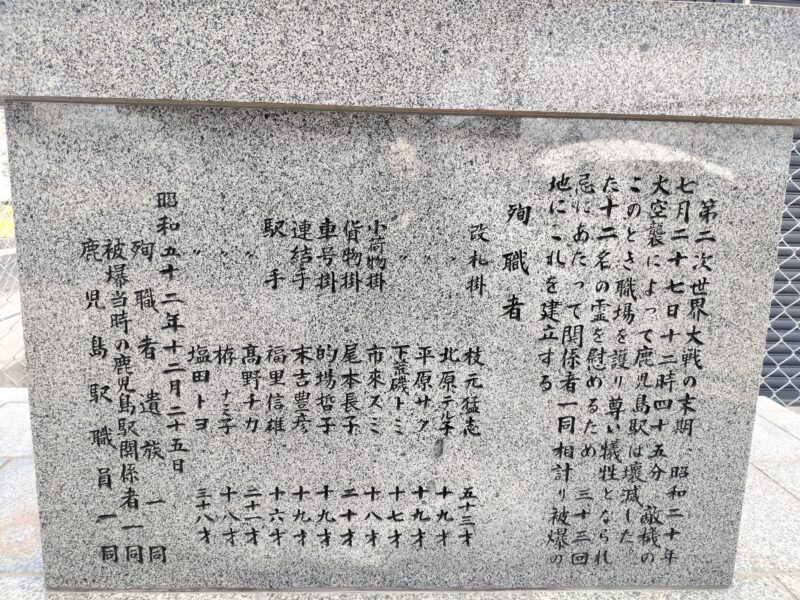 第二次世界大戦の末期、昭和二十年
七月二十七日十二時四十五分、敵機の
大空襲によって鹿児島駅は壊滅した
このとき職場を護り尊い犠牲となられ
た十二名の霊を慰めるため 三十三回
忌にあたって関係者一同相計り被爆の
地にこれを建立する
殉職者
改札掛 枝元猛志 五十三才
〃 北原 十九才
〃 平原サク 十九才
〃 下荒磯トミ 十七才
小荷物掛 市來スミ 十八才
貨物掛 尾本長子 二十才
車号掛 的場哲子 十九才
連結手 末吉豊彦 十九才
駅手 福里信雄 十六才
〃 髙野チカ 二十一才
〃 栫ナミ子 十八才
〃 塩田トヨ 三十八才
昭和五十二年十二月二十五日
殉職者遺族一同
被爆当時の鹿児島駅関係者一同
鹿児島駅職員一同